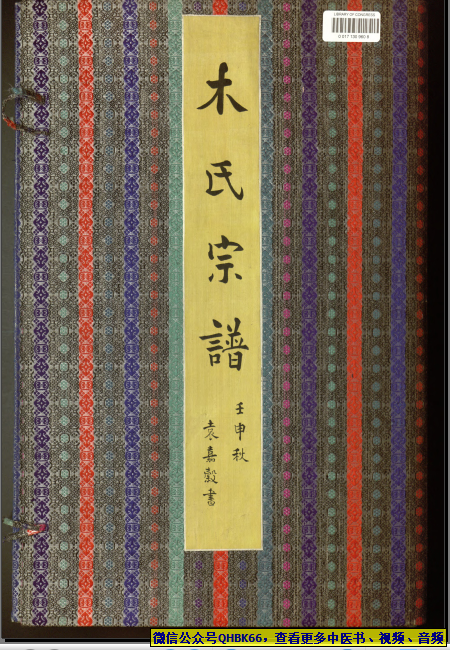 木氏宗譜
壬申秋
袁嘉穀書
LIBRARY OF CONGRESS
微信公众号QHBK66，查看更多中医书、视频、音频